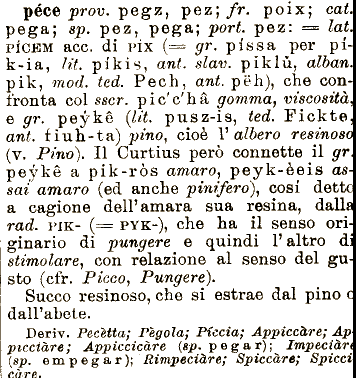 péce prov. pegz, pez; fr. poix; cat.
pega; sp. pez, pega; port. pez: = lat.
PÍCEM acc. di PIX (= gr. píssa per pí-
k-ia, lit. pikis, ant. slav. piklŭ, alban.
pik, mod. ted. Pech, ant. pëh), che con-
fronta col sscr. pic'c'hâ gomma, viscosità,
e gr. peýkê (lit. pusz-is, ted. Fickte,
ant. fiuh-ta) pino, cioè l'albero resinoso
(v. Pino). Il Curtius però connette il gr.
peýkê a pik-ròs amaro, peyk-èeis as-
sai amaro (ed anche pinifero), cosí detto
a cagione dell'amara sua resina, dalla
rad. PIK- (= PYK-), che ha il senso ori-
ginario di pungere e quindi l'altro di
stimolare, con relazione al senso del gu-
sto (cfr. Picco, Pungere).
Succo resinoso, che si estrae dal pino o
dall'abete.
Deriv. Pecètta; Pègola; Píccia; Appiccàre; Ap-
picciàre; Appiccicàre (sp. pegar); Impeciàre
(sp. empegar); Rimpeciàre; Spiccàre; Spicci
càre.